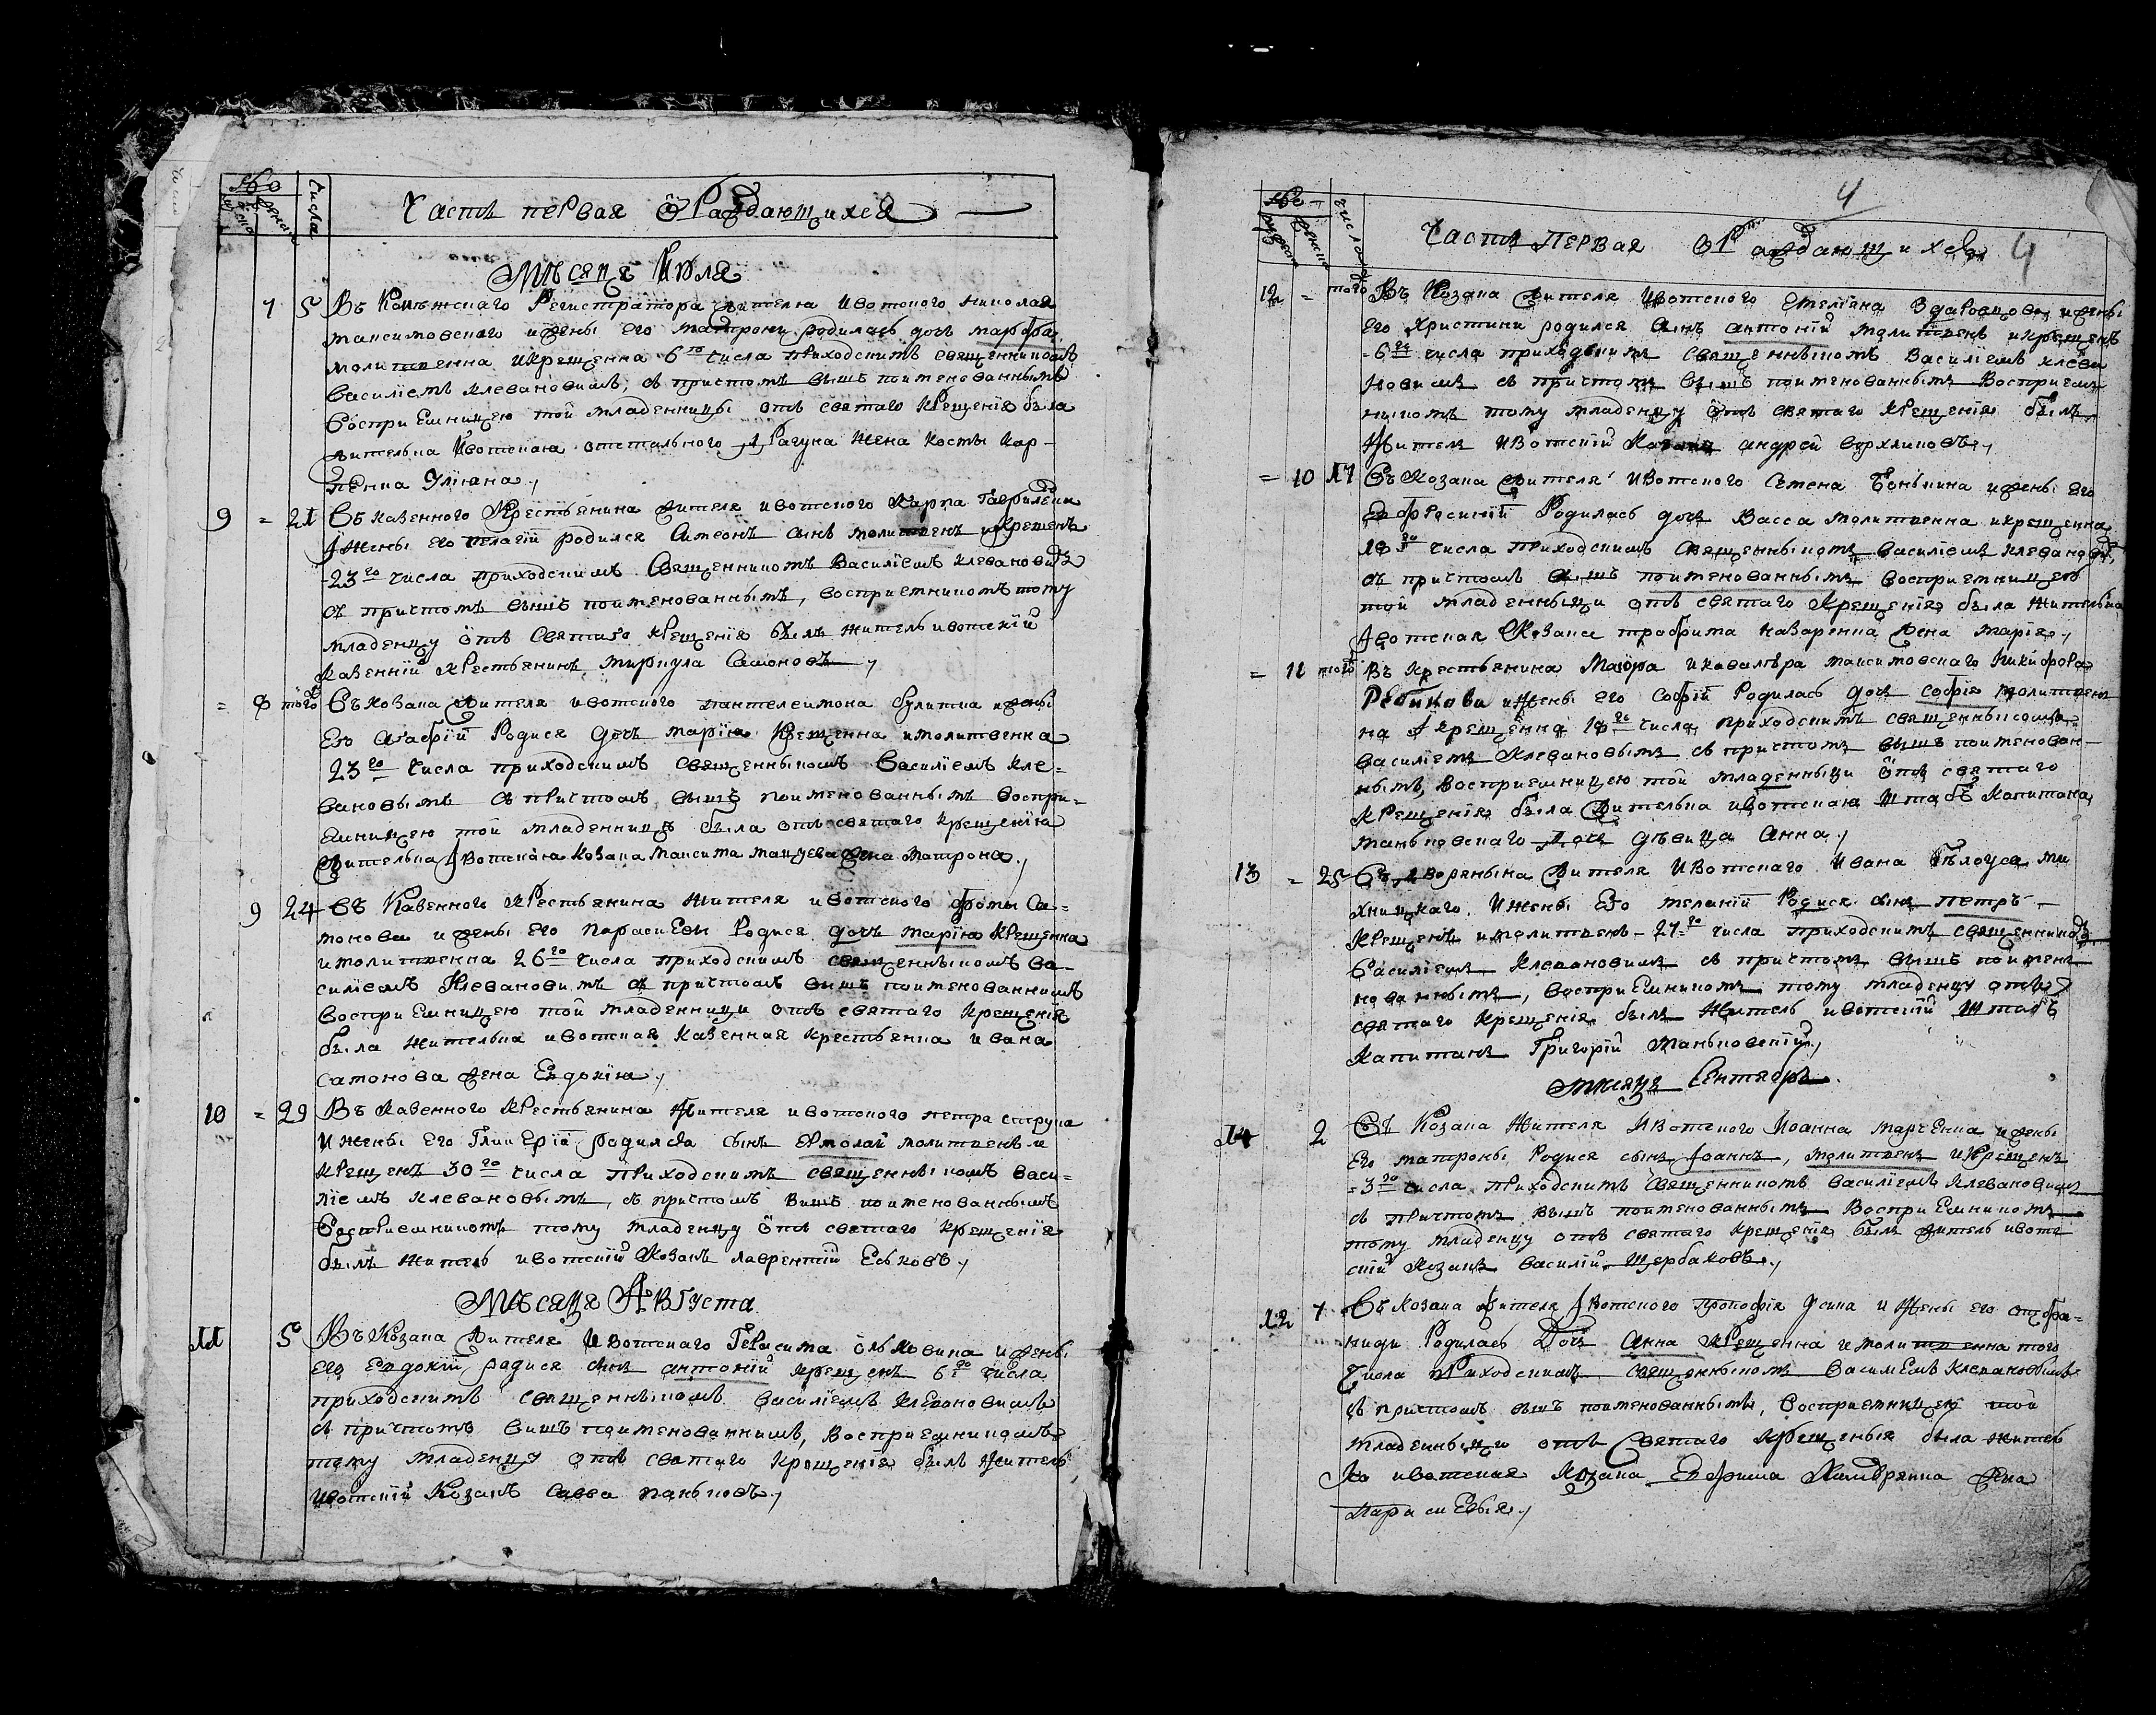 №
мужеска
женска
числа
Часть первая о Раждающихся
Мѣсяца Июля
7 5 Въ Колѣжскаго Регистратора жителя ивотского николая
максимовскаго и жены его матрони родилась дочъ марфа
молитвенна икрещенна 6го числа приходскимъ священникомъ
василіемъ клевановимъ, съ причтомъ вышъ поименованнымъ
воспріемницею той младенницы отъ святаго крещенія была
жителька ивотская отстального драгуна жена косты кар-
пенка Уліяна,
9 = 21 Въ казенного крестьянина жителя ивотского карпа Гаврилена
и жены его пелагій родился симеонъ сынъ молитвенъ икрещенъ
23го числа приходскимъ священникомъ василіемъ клевановимъ
съ причтомъ вышъ поименованнымъ, воспріемникомъ тому
младенцу отъ святаго крещенія былъ житель ивотскій
казенній крестьянинъ миркула самоновъ,
= 8 того Въ козака жителя ивотского пантелеимона булитка и жены
Его агафій родися дочъ марія крещенна имолитвенна
23го числа приходскимъ священныкомъ василіемъ кле-
вановымъ съ причтомъ вышъ поименованнымъ воспрі-
емницею той младенницъ была отъ святаго крещенія
жителька ивотская козака максима мацуева жена матрона,
9 24 Въ казенного крестьянина жителя ивотского фомы са-
монова и жены его параскеви родися дочъ марія крещенна
имолитвенна 26го числа приходскимъ священныкомъ ва-
силіемъ клевановимъ съ причтомъ вишъ поименованнимъ
воспріемницею той младенници отъ святаго крещенія
была жителька ивотская казенная крестьянка ивана
самонова жена Евдокія,
10 = 29 Въ казенного крестьянина жителя ивотского петра струка
и жены его Гликеріи родился сынъ ермолай молитвенъ и
крещенъ 30го числа приходскимъ священныкомъ васи-
ліемъ клевановымъ, съ причтомъ вишъ поименованнымъ
воспріемникомъ тому младенцу отъ святаго крещенія
былъ житель ивотскій козакъ лаврентій Еськовъ,
Мѣсяца Августа
11 5 Въ козака жителя ивотского Герасима ольховика и жены
его Евдокій родися сынъ антоній крещенъ 6го числа
приходскимъ священныкомъ василіемъ клевановимъ
съ причтомъ вишъ поименованнимъ, воспріемникомъ
тому младенцу отъ святаго крещенія былъ житель
ивотскій козакъ савва панковъ,
4
№
мужеска
женска
числа
Часть первая о Раждающихся 4
12 = того Въ козака жителя ивотского Емеліяна и жены
его христини родился сынъ антоній молитвенъ икрещенъ
6го числа приходскимъ священныкомъ василіемъ клева
новимъ съ причтомъ вышъ поименованнымъ воспріем
никомъ тому младенцу отъ святаго крещенія былъ
житель ивотскій козакъ андрей
= 10 17 Въ козака жителя ивотского семена бенькина и жены его
Евфросиній родилась дочъ васса молитвенна икрещенна
18го числа приходскимъ священныкомъ василіемъ клевановим,
съ причтомъ вышъ поименованнымъ воспріемницею
той младенныци отъ святаго крещенія была жителька
ивотская козака трофима назаренка жена марія,
= 11 того Въ крестьянина маіора икавалѣра максимовскаго никифора
Ребикова и жены его софій родилась дочъ софія молитвен
на и крещенна 18го числа приходскимъ священныкомъ
василіемъ клевановымъ съ причтомъ вышъ поименован-
нымъ, воспріемницею той младенныци отъ святаго
крещенія была жителька ивотская штабъ капитана
маньковскаго дочъ дѣвица анна,
13 = 25 Въ дворянына жителя ивотскаго ивана бѣлоуса ми
хницкаго и жены его меланій родися сынъ петръ
крещенъ имолитвенъ 27го числа приходскимъ священником
василіемъ клевановимъ съ причтомъ вышъ поимен
нованнымъ, воспріемникомъ тому младенцу отъ
святаго крещенія былъ житель ивотскій штабъ
капитанъ Григорій маньковскій,
мѣсяца Сентября
14 2 Въ козака жителя ивотского иоанна марченка и жены
его матроны родися сынъ иоаннъ, молитвенъ икрещенъ
3го числа приходскимъ священникомъ василіемъ клевановим
съ причтомъ вышъ поименованнымъ воспріемникомъ
тому младенцу отъ святаго крещенія былъ житель ивот
скій козакъ василій щербаковъ,
12 7 Въ козака жителя ивотского прокофія усика и жены его
ниди родилась дочъ анна крещенна имолитвенна того
числа приходскимъ священныкомъ василіемъ клевановимъ
съ причтомъ вышъ поименованнымъ, воспріемницею той
младенныци отъ святаго крещенія была житель
ка ивотская козака жена
параскевія,